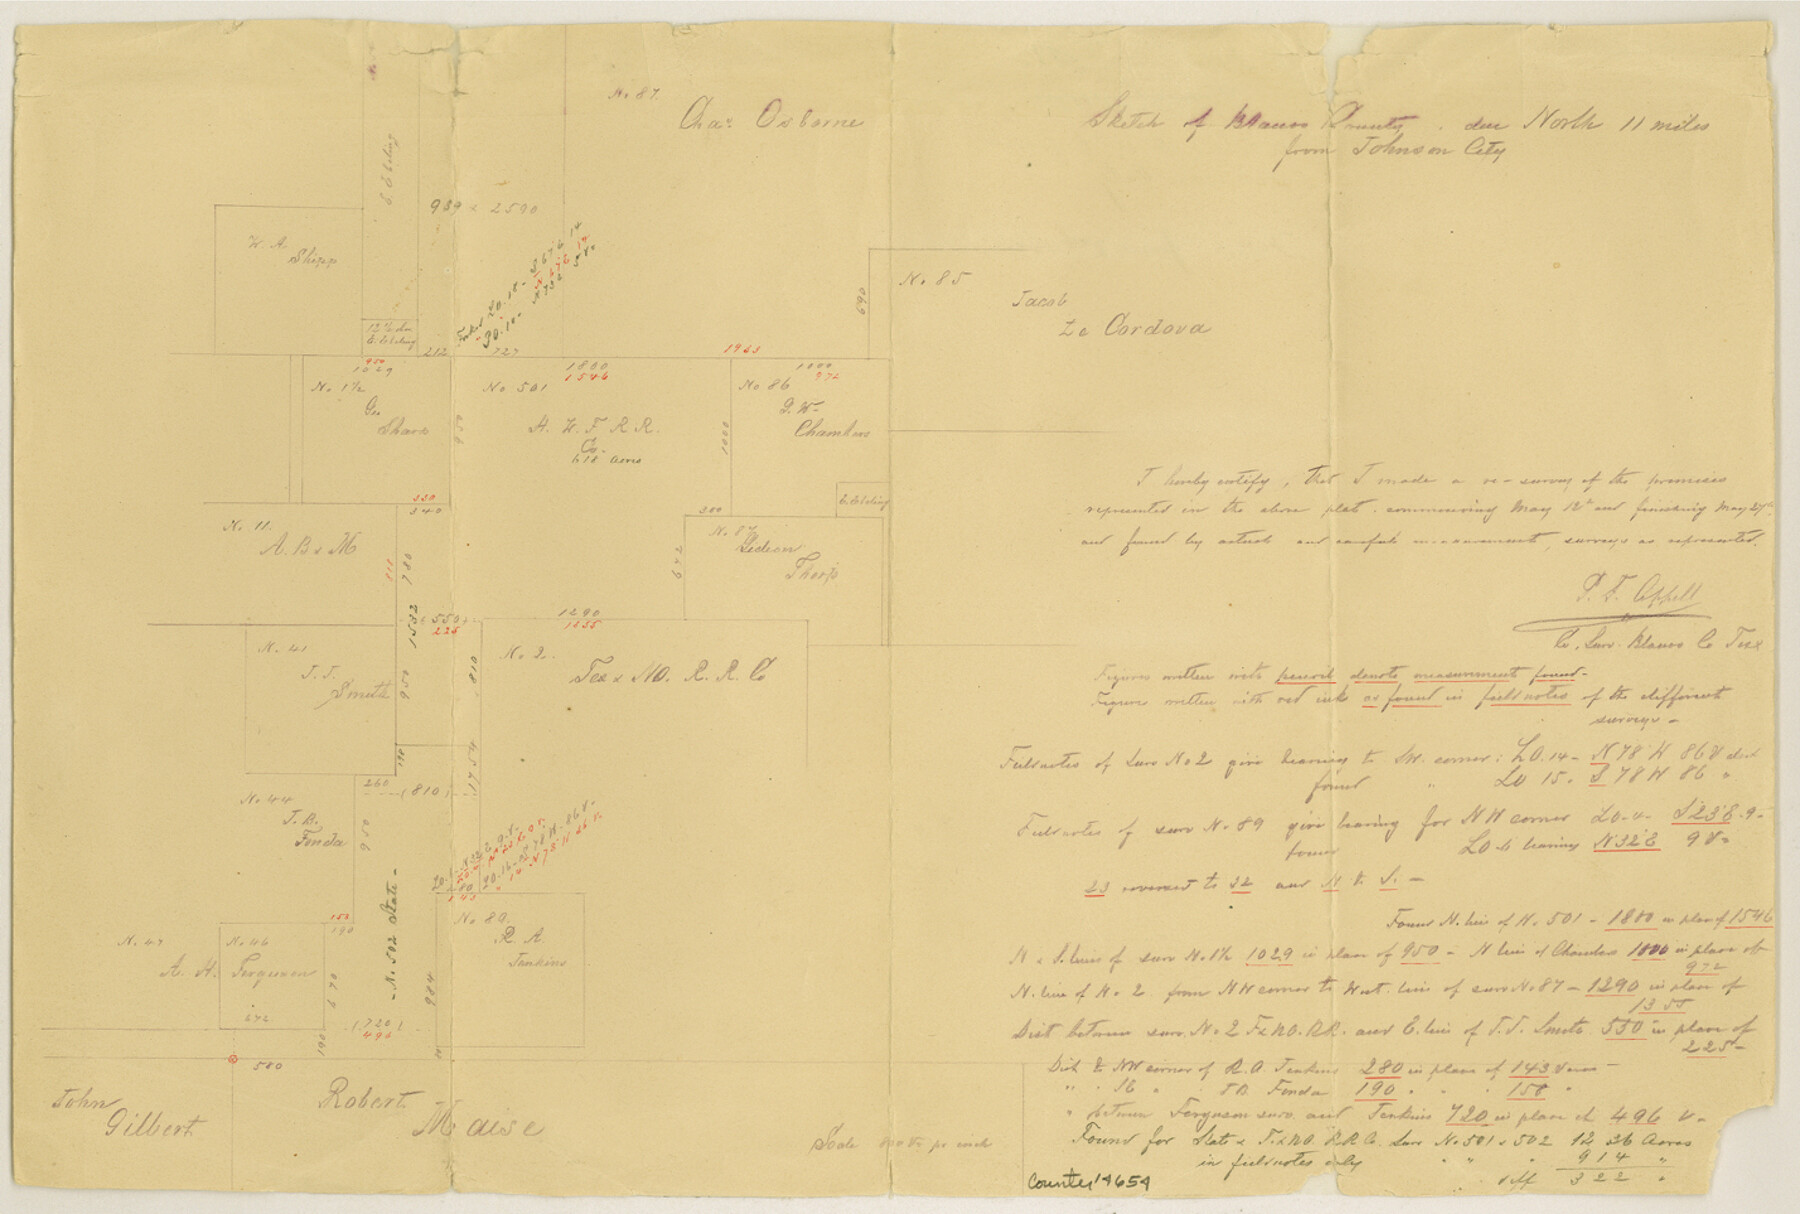 No 87.
Chas Osborne
Sketch of Blanco County. due North 11 miles
from Johnson City
E. Ebeling
939 x 2590
W. A.
Shipp
No 85
Jacob
De Cordova
690
E. Ebeling
212
727
1933
950
1029
1800
1546
1000
972
No 1½
Geo
Sharp
No 501
H. W. F R R.
Co.
618 acres
No 86
G. W.
Chambers
950
1000
E. Ebeling
330
340
300
No 11
A. B & M
No. 87
Gideon
Thorp
642
780
1532
I hereby certify, that I made a re-survey of the premises
represented in the above plat. commencing May 12th and finishing May 27th
and found by actual and careful measurement, surveys as represented.
P. F. Appell
Co. Surv. Blanco Co Tex
(550)
225
1290
1355
No. 41
J. J.
Smith
950
810
No. 2.
Tex & NO. R. R. Co
Figures written with pencil denote measurement found-
Figures written with red ink as found in fieldnotes of the different
surveys-
Fieldnotes of Surv No 2 give bearing to SW. corner: LO. 14- N 78 W 86 V dist
found " LO 15. S 78 W 86 "
198
1754
260
(810)
No. 44
J. B.
Fonda
950
No. 502 State
Fieldnotes of surv No. 89 give bearing for NW corner LO-6- S 23 E. 9-
found LO-6 bearing N 32 E 9 V-
23 reversed to 32 and N & S. -
280
143
No 89.
R. A.
Jenkins
150
190
No. 47
A. H.
No. 46
Ferguson
670
984
672
190
(720)
496
580
Found N. line of No. 501 - 1800 in place of 1546
N & S. lines of surv No. 1½ 1029 in place of 950 - N line of Chambers 1000 in place of
972
N. line of No. 2 from NW corner to West. line of surv No. 87 - 1290 in place of
1355
Dist between surv. No 2 T & NO. RR. and E. line of J. J. Smith 550 in place of
225-
Dist to NW corner of R. A Jenkins 280 in place of 143 varas -
" " J B Fonda 190 " " 150 "
" between Ferguson surv. and Jenkins 720 in place of 496 V-
Found for State & T. & NO. R R Co. Surv No. 501 & 502 1236 Acres
in fieldnotes only " " 914 "
diff 322 "
John
Gilbert
Robert
Maise
Scale 400 Vs pr inch
Counter 14654